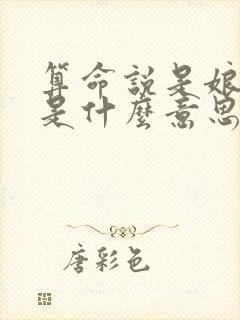 算命說是娘
是什麼意思
唐彩色